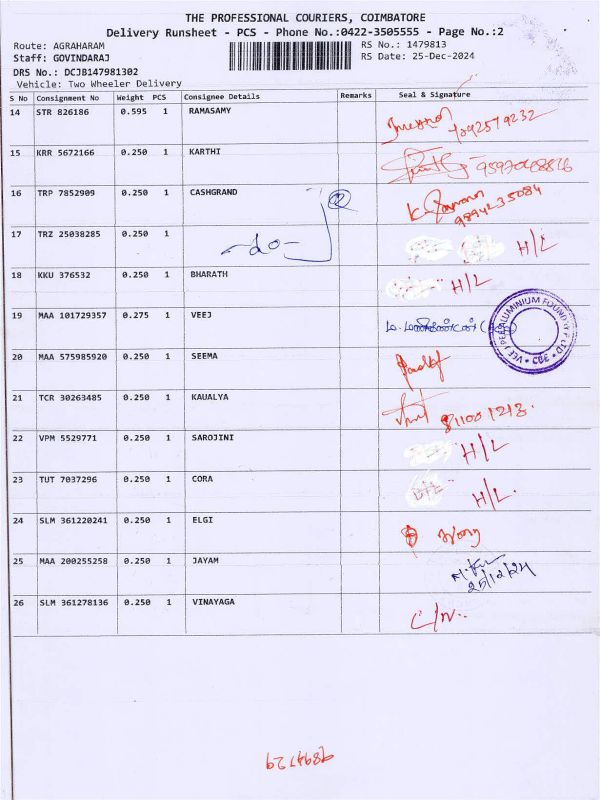 THE PROFESSIONAL COURIERS, COIMBATORE
Delivery Runsheet - PCS - Phone No.:0422-3505555 - Page No.:2
Route: AGRAHARAM RS No.: 1479813
Staff: GOVINDARAJ RS Date: 25-Dec-2024
DRS No.: DCJB147981302
Vehicle: Two Wheeler Delivery
S No Consignment No Weight PCS Consignee Details Remarks Seal & Signature
14 STR 826186 0.595 1 RAMASAMY
15 KRR 5672166 0.250 1 KARTHI
16 TRP 7852909 0.250 1 CASHGRAND 9894235084
17 TRZ 25038285 0.250 1 -do- H/L
18 KKU 376532 0.250 1 BHARATH H/L
19 MAA 101729357 0.275 1 VEEJ
20 MAA 575985920 0.250 1 SEEMA
21 TCR 30263485 0.250 1 KAUALYA
22 VPM 5529771 0.250 1 SAROJINI H/L
23 TUT 7037296 0.250 1 CORA H/L.
24 SLM 361220241 0.250 1 ELGI
25 MAA 200255258 0.250 1 JAYAM 25/12/24
26 SLM 361278136 0.250 1 VINAYAGA C/N..